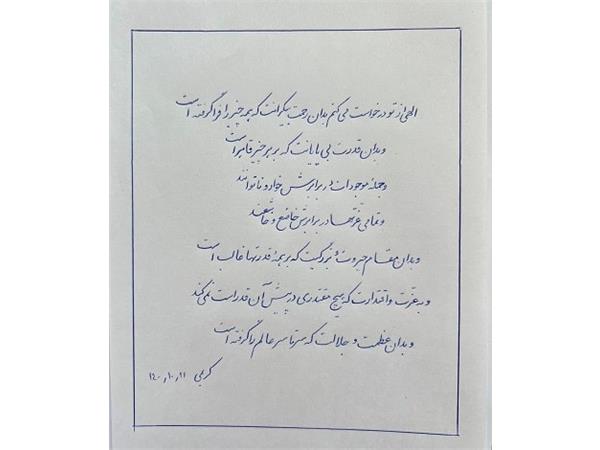 الهی از تو درخواست می کنم بدان رحمت بیکرانت که همه چیز را فرا گرفته است
و بدان قدرت بی پایانت که بر هر چیز قاهر است
و جمله موجودات در برابرش خوار و ناتوانند
و تمامی عزتها در برابرش خاضع و خاشعند
و بدان مقام جبروت و بزرگیت که بر همهٔ قدرتها غالب است
و به عزت و اقتدارت که هیچ مقتدری در پیش آن قد راست نمی کند
و بدان عظمت و جلالت که سرتاسر عالم را گرفته است
کریمی